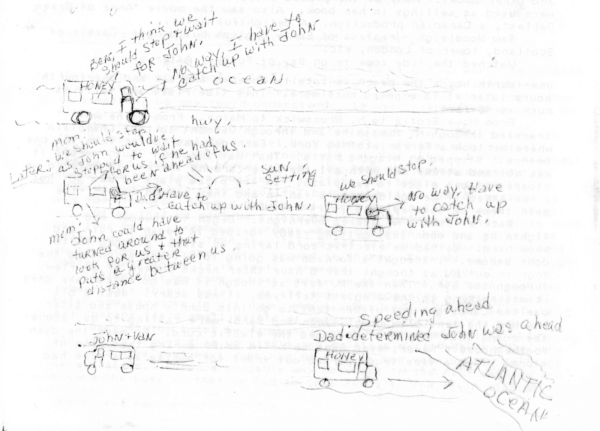 Ben, I think we
should stop & wait
for John.
No way, I have to
catch up with John
OCEAN
HONEY
hwy.
mom:
Later: we should stop,
as John would've
stopped to wait
for us if he had
been ahead of us.
SUN
SETTING
Dad: Have to
catch up with John.
mom:
John could have
turned around to
look for us & that
puts a greater
distance between us.
we should stop.
HONEY
No way. Have
to catch up
with John.
John & Van
Speeding ahead
Dad determined John was ahead
HONEY
ATLANTIC
OCEAN